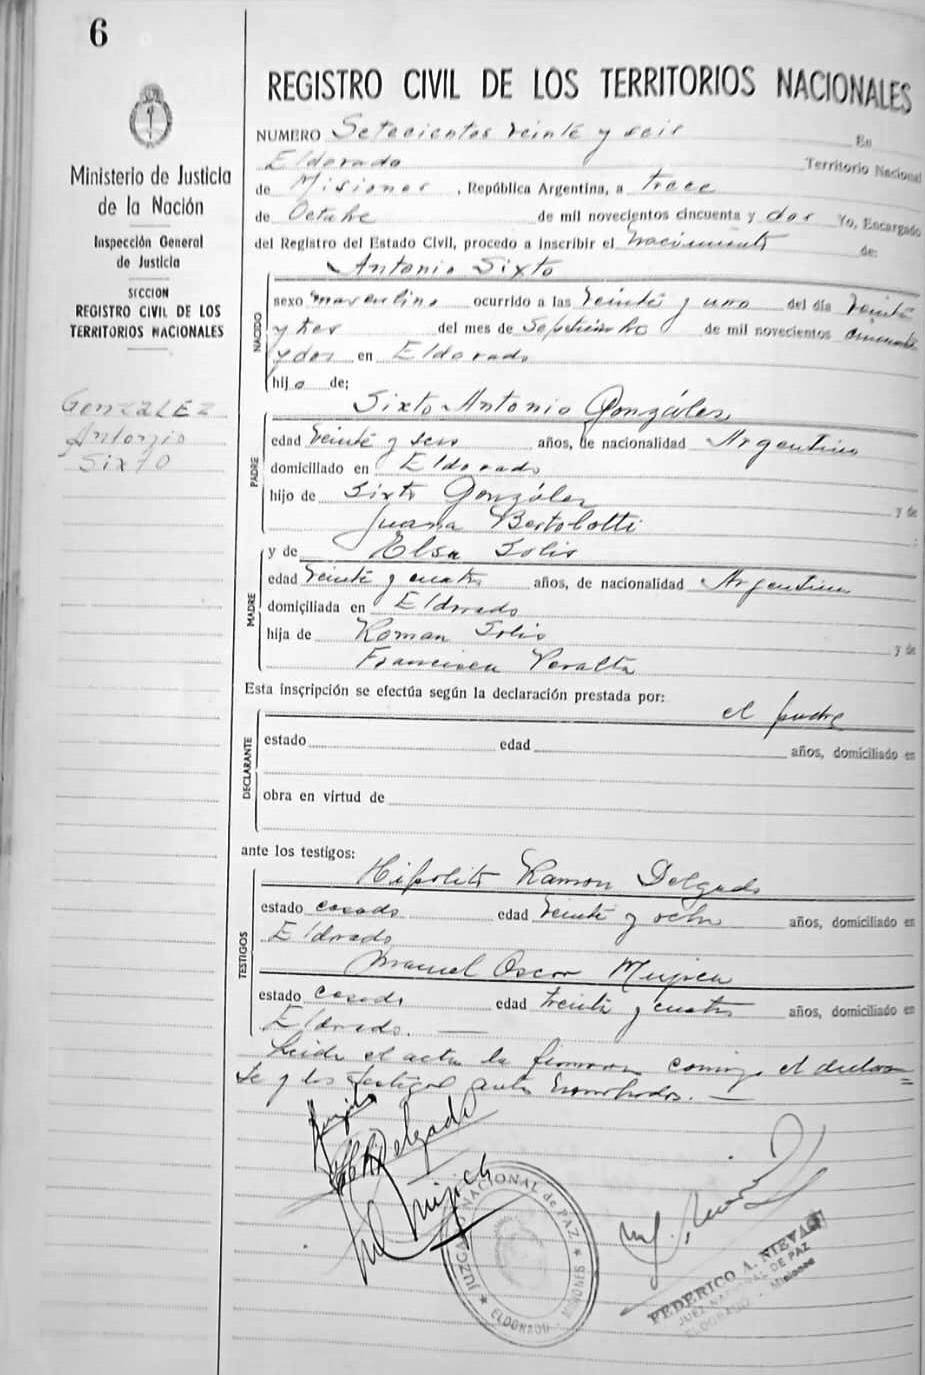 6
REGISTRO CIVIL DE LOS TERRITORIOS NACIONALES
Ministerio de Justicia
de la Nación
Inspección General
de Justicia
SECCION
REGISTRO CIVIL DE LOS
TERRITORIOS NACIONALES
GONZALEZ
Antonio
Sixto
NUMERO Setecientos veinte y seis En
Eldorado Territorio Nacional
de Misiones , República Argentina, a trece
de Octubre de mil novecientos cincuenta y dos Yo, Encargado
del Registro del Estado Civil, procedo a inscribir el nacimiento de:
Antonio Sixto
NACIDO
sexo masculino ocurrido a las veinte y una del día veinte
y tres del mes de Septiembre de mil novecientos cincuenta
y dos en Eldorado
hijo de;
Sixto Antonio González
PADRE
edad veinte y seis años, de nacionalidad Argentino
domiciliado en Eldorado
hijo de Sixto González y de
Juana Bertolotti
y de Elsa Solis
MADRE
edad veinte y cuatro años, de nacionalidad Argentina
domiciliada en Eldorado
hija de Roman Solis y de
Francisca Peralta
Esta inscripción se efectúa según la declaración prestada por:
el padre
DECLARANTE
estado edad años, domiciliado en
obra en virtud de
ante los testigos:
Hipolito Ramon Delgado
TESTIGOS
estado casado edad veinte y ocho años, domiciliado en
Eldorado
Manuel Oscar Mujica
estado casado edad treinta y cuatro años, domiciliado en
Eldorado.
Leida el acta la firmaron conmigo el declaran=
te y los testigos antes nombrados.
Delgado
Mujica
JUZGADO NACIONAL de PAZ
ELDORADO - MISIONES
FEDERICO A. NIEVAS
JUEZ NACIONAL DE PAZ
ELDORADO - Misiones